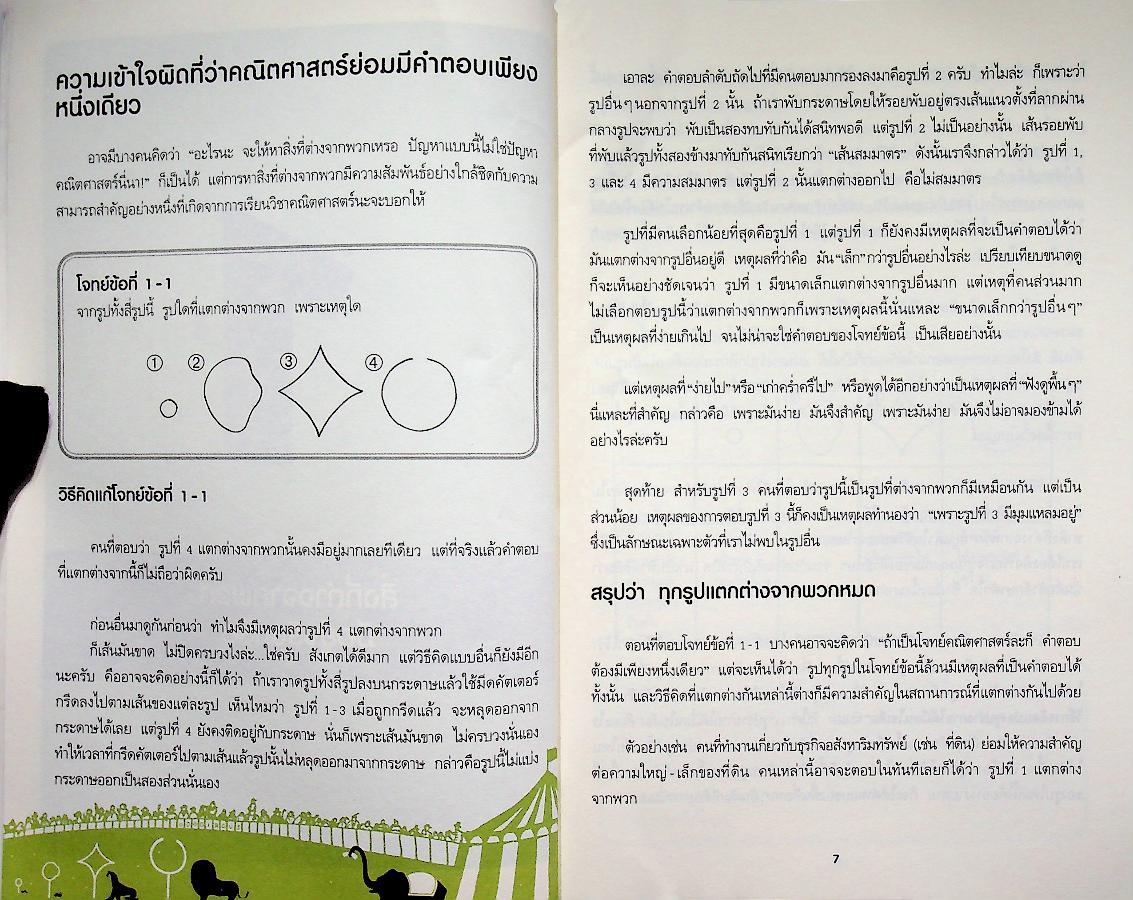 ความเข้าใจผิดที่ว่าคณิตศาสตร์ย่อมมีคำตอบเพียง
หนึ่งเดียว
อาจมีบางคนคิดว่า “อะไรนะ จะให้หาสิ่งที่ต่างจากพวกเหรอ ปัญหาแบบนี้ไม่ใช่ปัญหา
คณิตศาสตร์นี่นา!” ก็เป็นได้ แต่การหาสิ่งที่ต่างจากพวกมีความสัมพันธ์อย่างใกล้ชิดกับความ
สามารถสำคัญอย่างหนึ่งที่เกิดจากการเรียนวิชาคณิตศาสตร์นะจะบอกให้
โจทย์ข้อที่ 1-1
จากรูปทั้งสี่รูปนี้ รูปใดที่แตกต่างจากพวก เพราะเหตุใด
① ② ③ ④
วิธีคิดแก้โจทย์ข้อที่ 1-1
คนที่ตอบว่า รูปที่ 4 แตกต่างจากพวกนั้นคงมีอยู่มากเลยทีเดียว แต่ที่จริงแล้วคำตอบ
ที่แตกต่างจากนี้ก็ไม่ถือว่าผิดครับ
ก่อนอื่นมาดูกันก่อนว่า ทำไมจึงมีเหตุผลว่ารูปที่ 4 แตกต่างจากพวก
ก็เส้นมันขาด ไม่ปิดครบวงไงล่ะ...ใช่ครับ สังเกตได้ดีมาก แต่วิธีคิดแบบอื่นก็ยังมีอีก
นะครับ คืออาจจะคิดอย่างนี้ก็ได้ว่า ถ้าเราวาดรูปทั้งสี่รูปลงบนกระดาษแล้วใช้มีดคัตเตอร์
กรีดลงไปตามเส้นของแต่ละรูป เห็นไหมว่า รูปที่ 1-3 เมื่อถูกกรีดแล้ว จะหลุดออกจาก
กระดาษได้เลย แต่รูปที่ 4 ยังคงติดอยู่กับกระดาษ นั่นก็เพราะเส้นมันขาด ไม่ครบวงนั่นเอง
ทำให้เวลาที่กรีดคัตเตอร์ไปตามเส้นแล้วรูปนั้นไม่หลุดออกมาจากกระดาษ กล่าวคือรูปนี้ไม่แบ่ง
กระดาษออกเป็นสองส่วนนั่นเอง
เอาละ คำตอบลำดับถัดไปที่มีคนตอบมากรองลงมาคือรูปที่ 2 ครับ ทำไมล่ะ ก็เพราะว่า
รูปอื่นๆ นอกจากรูปที่ 2 นั้น ถ้าเราพับกระดาษโดยให้รอยพับอยู่ตรงเส้นแนวตั้งที่ลากผ่าน
กลางรูปจะพบว่า พับเป็นสองทบทับกันได้สนิทพอดี แต่รูปที่ 2 ไม่เป็นอย่างนั้น เส้นรอยพับ
ที่พับแล้วรูปทั้งสองข้างมาทับกันสนิทเรียกว่า “เส้นสมมาตร” ดังนั้นเราจึงกล่าวได้ว่า รูปที่ 1,
3 และ 4 มีความสมมาตร แต่รูปที่ 2 นั้นแตกต่างออกไป คือไม่สมมาตร
รูปที่มีคนเลือกน้อยที่สุดคือรูปที่ 1 แต่รูปที่ 1 ก็ยังคงมีเหตุผลที่จะเป็นคำตอบได้ว่า
มันแตกต่างจากรูปอื่นอยู่ดี เหตุผลที่ว่าคือ มัน“เล็ก”กว่ารูปอื่นอย่างไรล่ะ เปรียบเทียบขนาดดู
ก็จะเห็นอย่างชัดเจนว่า รูปที่ 1 มีขนาดเล็กแตกต่างจากรูปอื่นมาก แต่เหตุที่คนส่วนมาก
ไม่เลือกตอบรูปนี้ว่าแตกต่างจากพวกก็เพราะเหตุผลนี้นั่นแหละ “ขนาดเล็กกว่ารูปอื่นๆ”
เป็นเหตุผลที่ง่ายเกินไป จนไม่น่าจะใช่คำตอบของโจทย์ข้อนี้ เป็นเสียอย่างนั้น
แต่เหตุผลที่“ง่ายไป”หรือ“เก่าคร่ำครึไป” หรือพูดได้อีกอย่างว่าเป็นเหตุผลที่“ฟังดูพื้นๆ”
นี่แหละที่สำคัญ กล่าวคือ เพราะมันง่าย มันจึงสำคัญ เพราะมันง่าย มันจึงไม่อาจมองข้ามได้
อย่างไรล่ะครับ
สุดท้าย สำหรับรูปที่ 3 คนที่ตอบว่ารูปนี้เป็นรูปที่ต่างจากพวกก็มีเหมือนกัน แต่เป็น
ส่วนน้อย เหตุผลของการตอบรูปที่ 3 นี้ก็คงเป็นเหตุผลทำนองว่า “เพราะรูปที่ 3 มีมุมแหลมอยู่”
ซึ่งเป็นลักษณะเฉพาะตัวที่เราไม่พบในรูปอื่น
สรุปว่า ทุกรูปแตกต่างจากพวกหมด
ตอนที่ตอบโจทย์ข้อที่ 1-1 บางคนอาจจะคิดว่า “ถ้าเป็นโจทย์คณิตศาสตร์ละก็ คำตอบ
ต้องมีเพียงหนึ่งเดียว” แต่จะเห็นได้ว่า รูปทุกรูปในโจทย์ข้อนี้ล้วนมีเหตุผลที่เป็นคำตอบได้
ทั้งนั้น และวิธีคิดที่แตกต่างกันเหล่านี้ต่างก็มีความสำคัญในสถานการณ์ที่แตกต่างกันไปด้วย
ตัวอย่างเช่น คนที่ทำงานเกี่ยวกับธุรกิจอสังหาริมทรัพย์ (เช่น ที่ดิน) ย่อมให้ความสำคัญ
ต่อความใหญ่-เล็กของที่ดิน คนเหล่านี้อาจจะตอบในทันทีเลยก็ได้ว่า รูปที่ 1 แตกต่าง
จากพวก
7